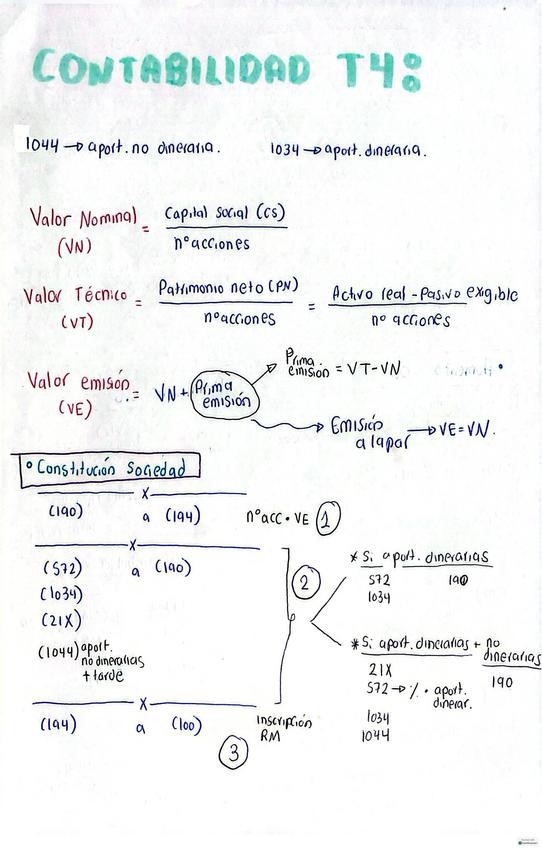 CONTABILIDAD T4:
1044 → aport. no dineraria. 1034 → aport. dineraria.
Valor Nominal (VN) = Capital Social (CS) / nº acciones
Valor Técnico (VT) = Patrimonio neto (PN) / nº acciones = Activo real - Pasivo exigible / nº acciones
Valor emisión (VE) = VN + Prima emisión
Prima emisión = VT - VN
Emisión a la par → VE = VN.
• Constitución Sociedad
X
(190) a (194) nº acc · VE 1
X
(572) a (190)
(1034)
(21X)
(1044) aport. no dinerarias + tarde
2
* Si aport. dinerarias
572 190
1034
* Si aport. dinerarias + no dinerarias
21X 190
572 → % · aport. dinerar.
1034
1044
X
(194) a (100) Inscripción RM
3